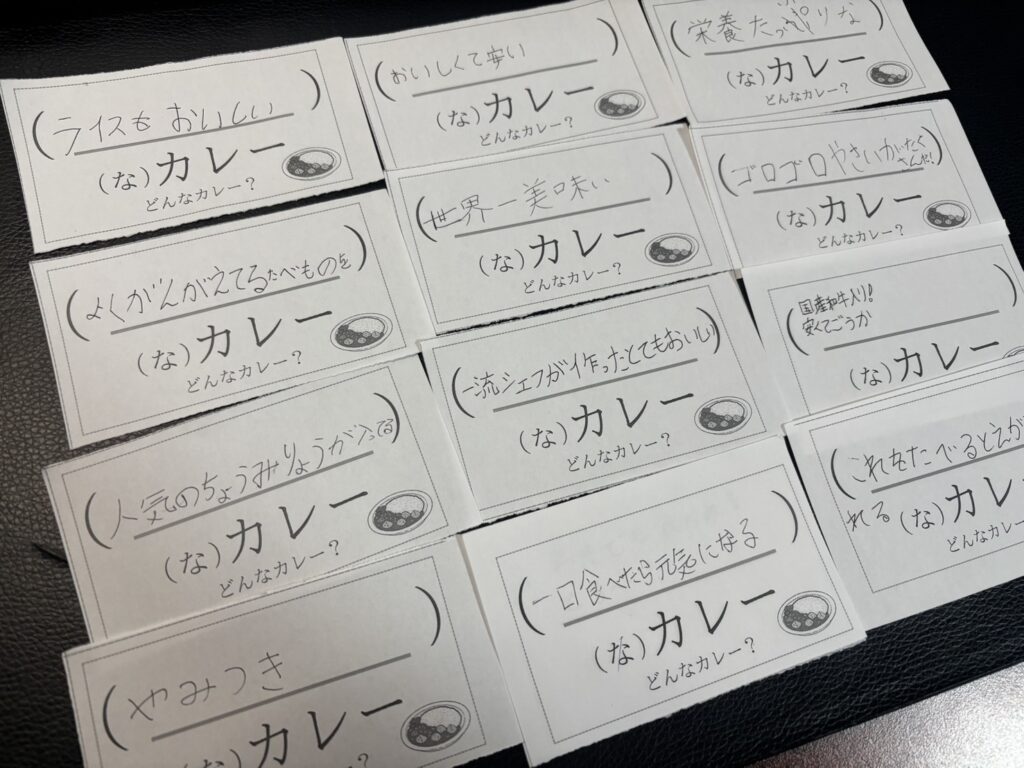 (ライスも おいしい)
(な)カレー
どんなカレー?
(おいしくて安い)
(な)カレー
どんなカレー?
(栄養たっぷりな)
(な)カレー
どんなカレー?
(よくかんがえてるたべものを)
(な)カレー
どんなカレー?
(世界一美味い)
(な)カレー
どんなカレー?
(ゴロゴロやさいがたくさんだ!)
(な)カレー
どんなカレー?
(人気のちょうみりょうが入ってる)
(な)カレー
どんなカレー?
(一流シェフが作ったとてもおいしい)
(な)カレー
どんなカレー?
(国産和牛入り!
安くてごうか)
(な)カレー
(やみつき)
(な)カレー
(一口食べたら元気になる)
(な)カレー
どんなカレー?
(これをたべるとえが
れる
(な)カレ
どんなカレー